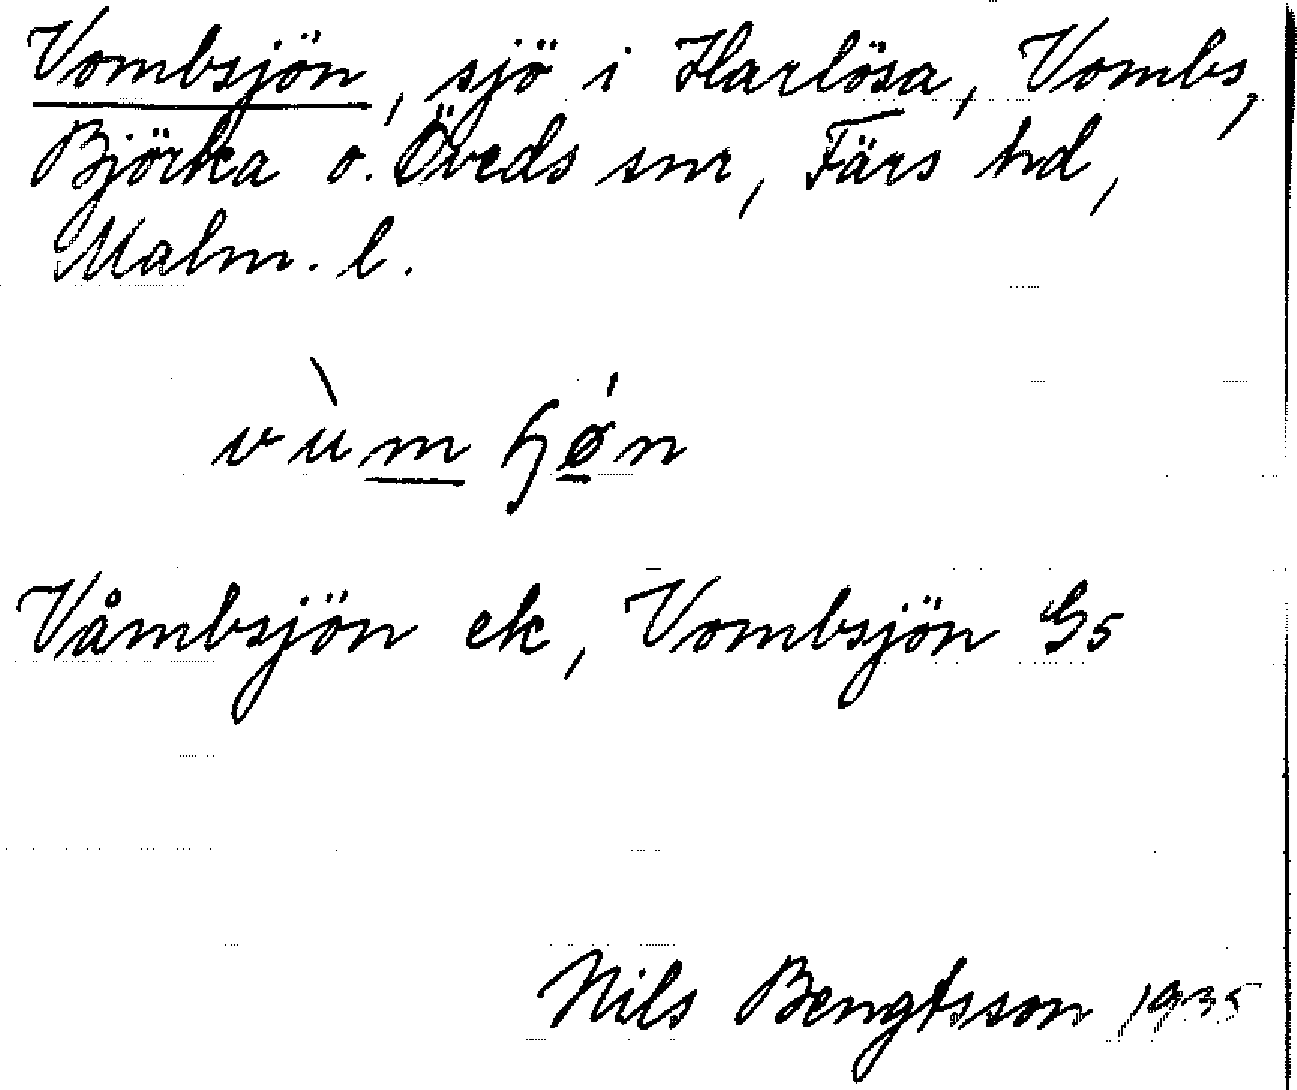 Vombsjön, sjö i Harlösa, Vombs,
Björka o. Öveds snr, Färs hd,
Malm. l.
vùm ɧǿn
Våmbsjön ek, Vombsjön G5
Nils Bengtsson 1935